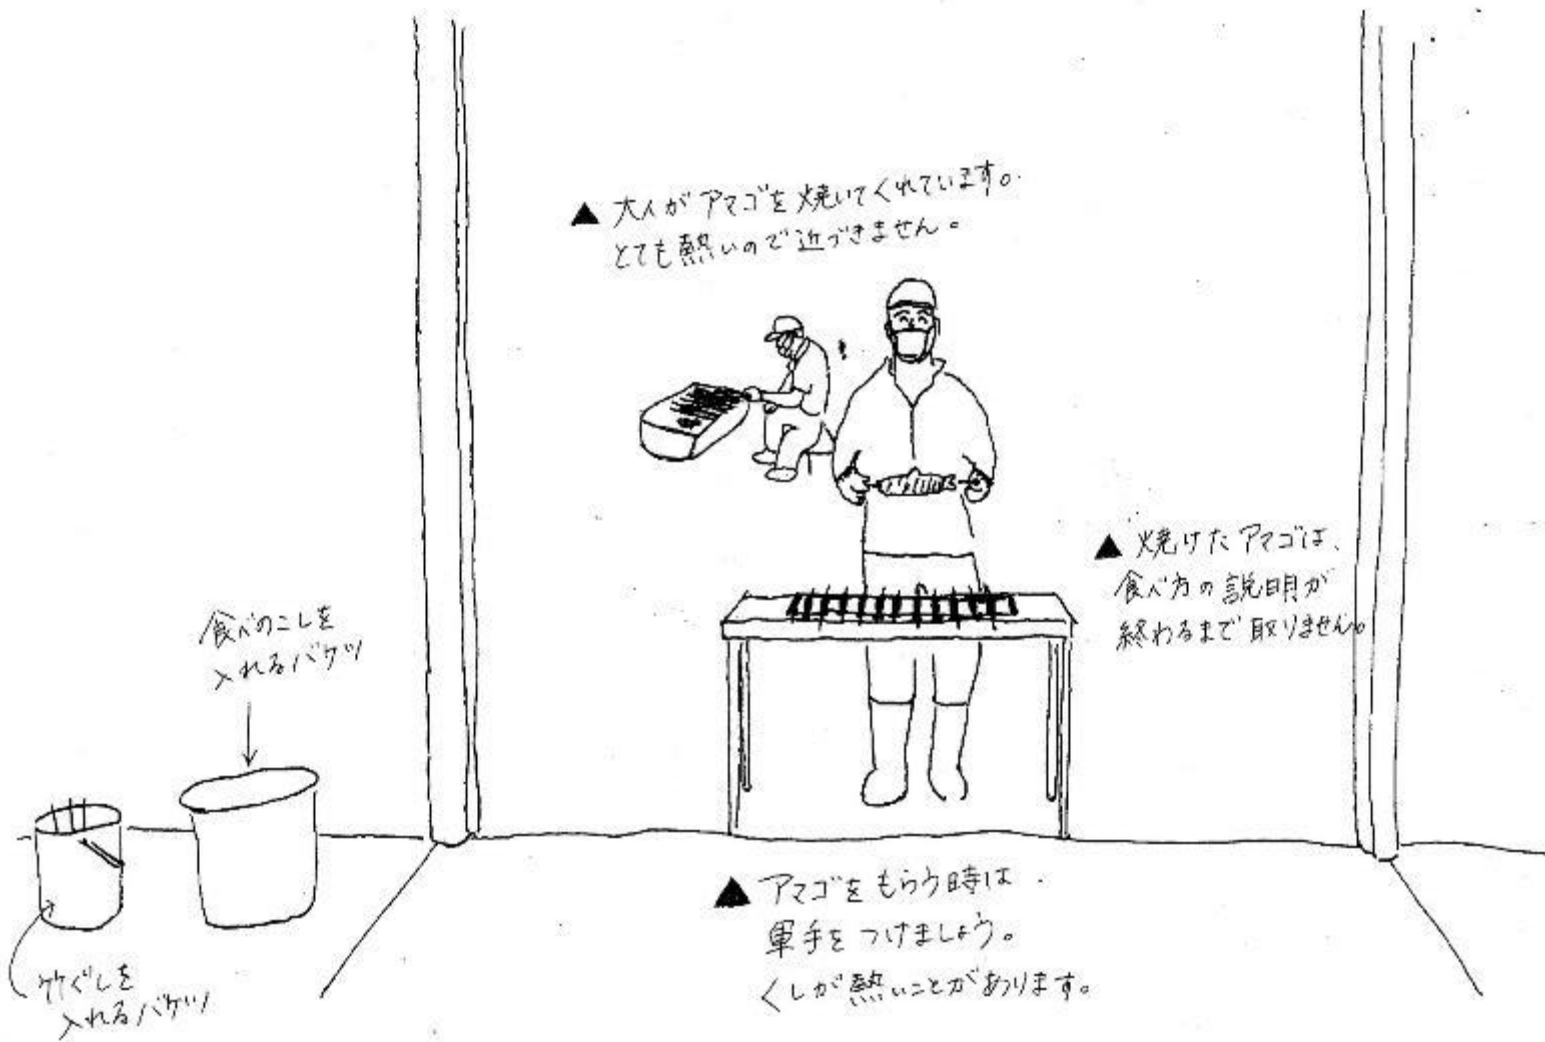 ▲ 大人がアマゴを焼いてくれています。
とても熱いので近づきません。
▲ 焼けたアマゴは、
食べ方の説明が
終わるまで取りません。
食べのこしを
入れるバケツ
▲ アマゴをもらう時は、
軍手をつけましょう。
くしが熱いことがあります。
竹ぐしを
入れるバケツ